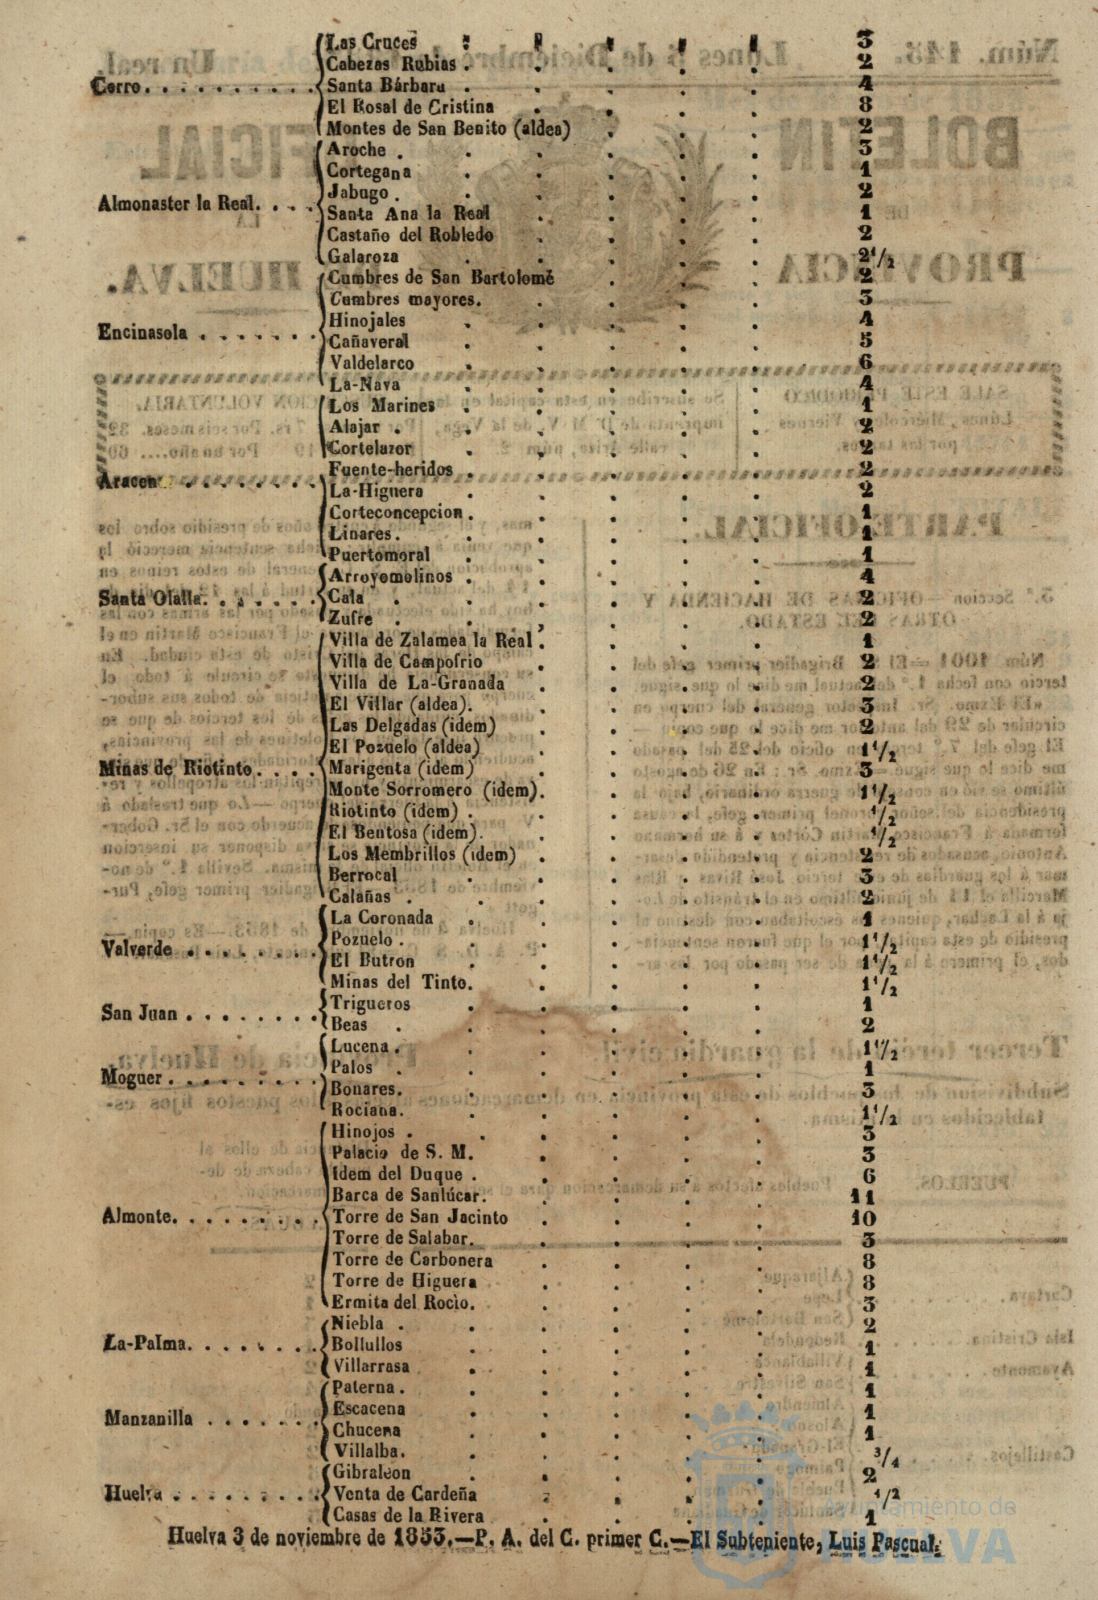 Las Cruces 3
Cabezas Rubias . 2
Cerro. . . . . . . . . . Santa Bárbara . 4
El Rosal de Cristina 8
Montes de San Benito (aldea) 2
Aroche . 3
Cortegana 1
Jabugo . 2
Almonaster la Real. . . . Santa Ana la Real 1
Castaño del Robledo 2
Galaroza 2 1/2
Cumbres de San Bartolomé 2
Cumbres mayores. 3
Hinojales 4
Encinasola . . . . . . . Cañaveral 5
Valdelarco 6
La-Nava 4
Los Marines 1
Alajar . 2
Cortelazor 2
Fuente-heridos . 2
Aracena . . . . . . . .
La-Higuera 2
Corteconcepcion . 1
Linares . 1
Puertomoral 1
Arroyomolinos . 4
Santa Olalla. . . . . . Cala . 2
Zufre . 2
Villa de Zalamea la Real . 1
Villa de Campofrio 2
Villa de La-Granada 2
El Villar (aldea). 3
Las Delgadas (idem) 2
El Pozuelo (aldea) 1 1/2
Minas de Riotinto. . . . Marigenta (idem) 3
Monte Sorromero (idem). 1 1/2
Riotinto (idem) . 1/2
El Bentosa (idem). 1/2
Los Membrillos (idem) 2
Berrocal 3
Calañas . 2
La Coronada 1
Pozuelo . 1 1/2
Valverde . . . . . . . . El Butron 1 1/2
Minas del Tinto. 1 1/2
Trigueros 1
San Juan . . . . . . . .
Beas . 2
Lucena . 1 1/2
Palos . 1
Moguer . . . . . . . . .
Bonares. 3
Rociana. 1 1/2
Hinojos . 3
Palacio de S. M. 3
Idem del Duque . 6
Barca de Sanlúcar. 11
Almonte. . . . . . . . . Torre de San Jacinto 10
Torre de Salabar. 3
Torre de Carbonera 8
Torre de Higuera 8
Ermita del Rocìo. 3
Niebla . 2
La-Palma. . . . . . . . Bollullos 1
Villarrasa 1
Paterna . 1
Escacena 1
Manzanilla . . . . . . .
Chucena 1
Villalba. 3/4
Gibraleon 2
Huelva . . . . . . . . . Venta de Cardeña 1/2
Casas de la Rivera 1
Huelva 3 de noviembre de 1853.—P. A. del C. primer C.—El Subteniente, Luis Pascual.
Ayuntamiento de
HUELVA